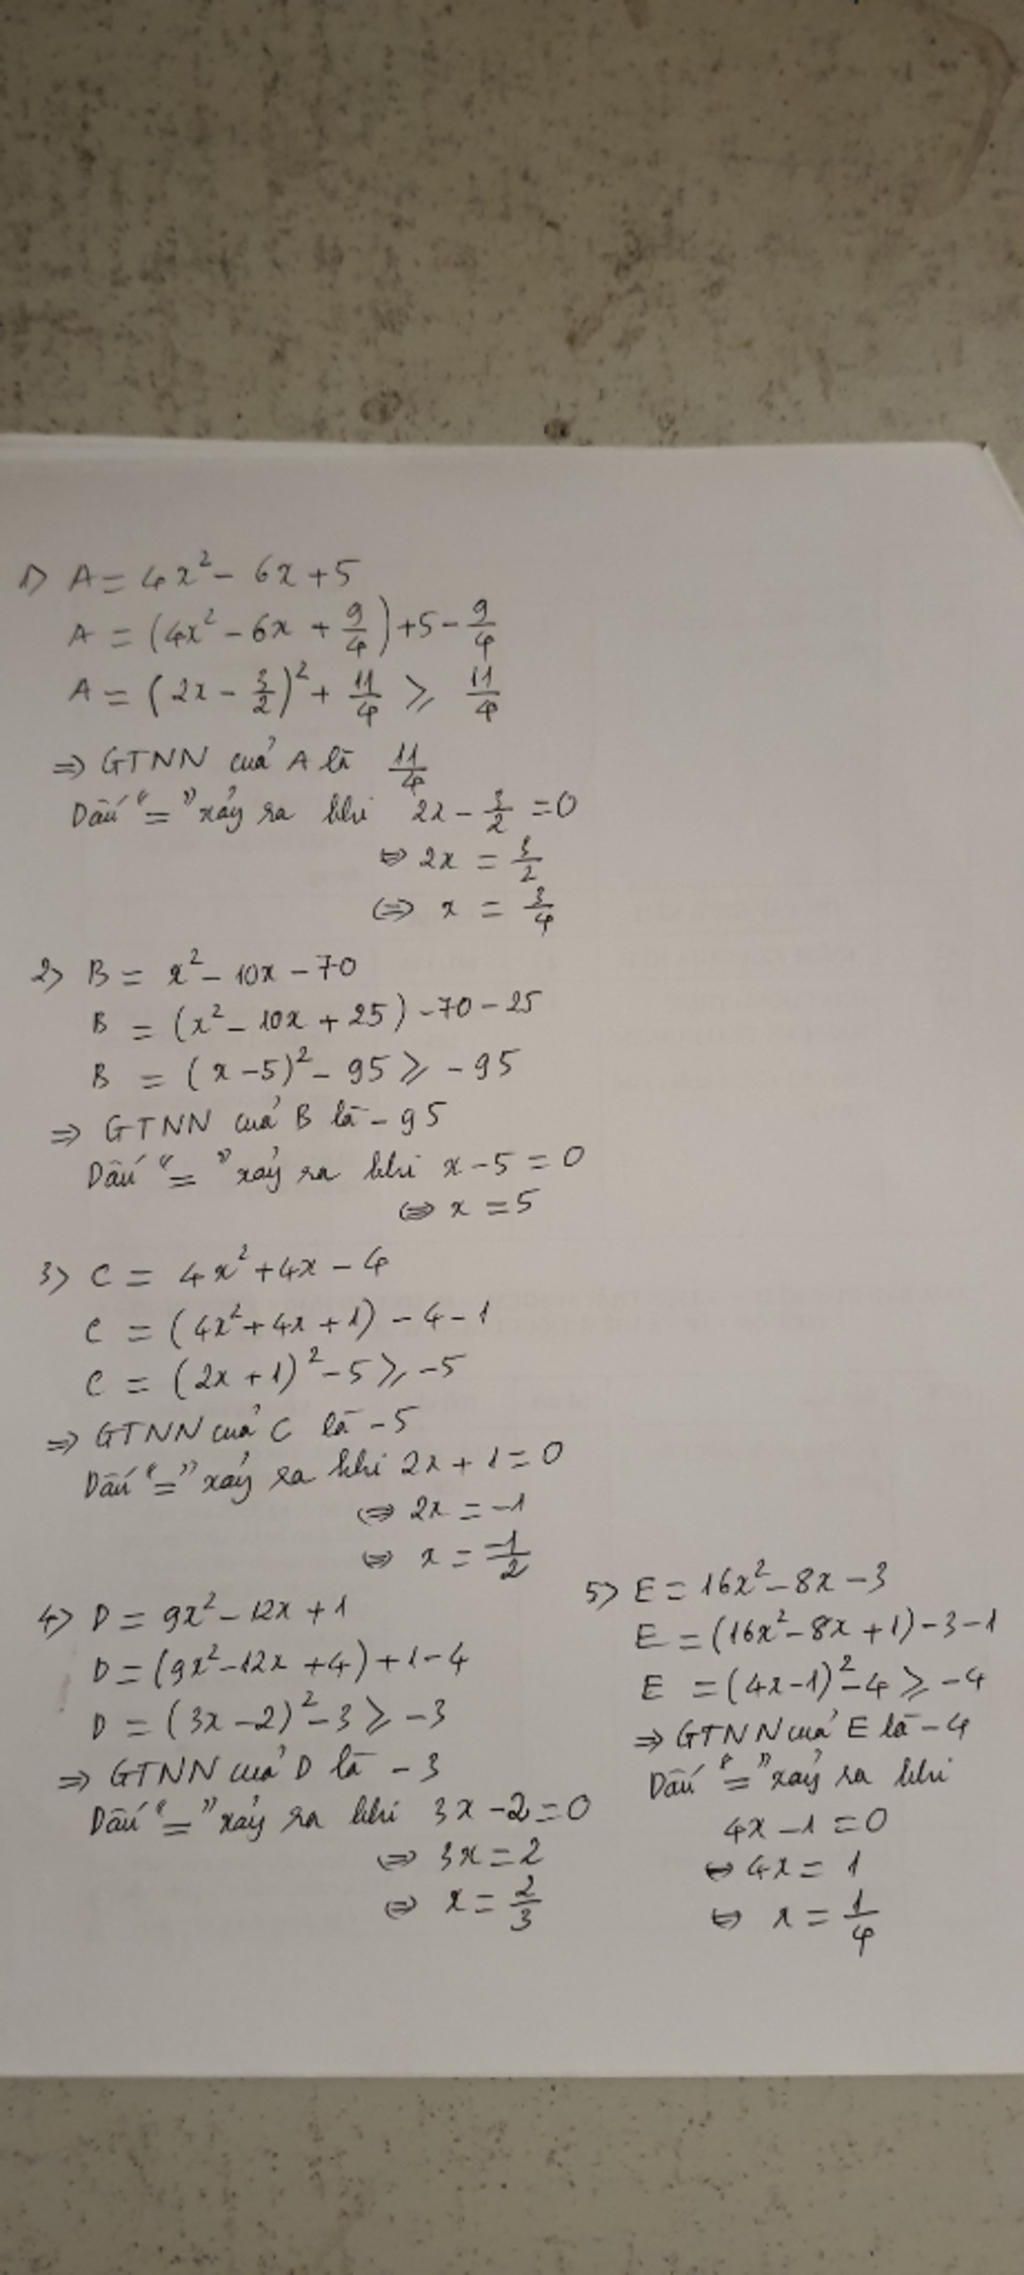 1) A = 4x² - 6x + 5
A = (4x² - 6x + 9/4) + 5 - 9/4
A = (2x - 3/2)² + 11/4 ⩾ 11/4
⇒ GTNN của A là 11/4
Dấu "=" xảy ra khi 2x - 3/2 = 0
⇔ 2x = 3/2
⇔ x = 3/4
2) B = x² - 10x - 70
B = (x² - 10x + 25) - 70 - 25
B = (x - 5)² - 95 ⩾ -95
⇒ GTNN của B là -95
Dấu "=" xảy ra khi x - 5 = 0
⇔ x = 5
3) C = 4x² + 4x - 4
C = (4x² + 4x + 1) - 4 - 1
C = (2x + 1)² - 5 ⩾ -5
⇒ GTNN của C là -5
Dấu "=" xảy ra khi 2x + 1 = 0
⇔ 2x = -1
⇔ x = -1/2
4) D = 9x² - 12x + 1
D = (9x² - 12x + 4) + 1 - 4
D = (3x - 2)² - 3 ⩾ -3
⇒ GTNN của D là -3
Dấu "=" xảy ra khi 3x - 2 = 0
⇔ 3x = 2
⇔ x = 2/3
5) E = 16x² - 8x - 3
E = (16x² - 8x + 1) - 3 - 1
E = (4x - 1)² - 4 ⩾ -4
⇒ GTNN của E là -4
Dấu "=" xảy ra khi
4x - 1 = 0
⇔ 4x = 1
⇔ x = 1/4